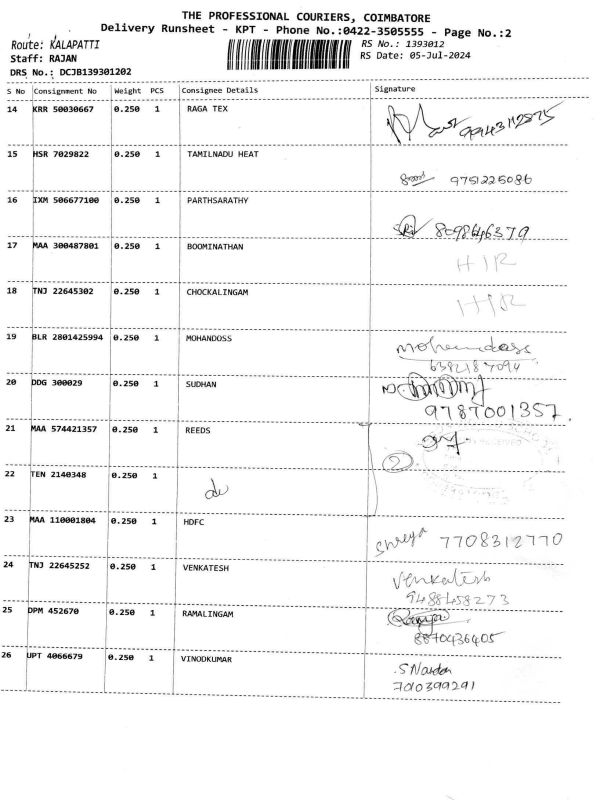 THE PROFESSIONAL COURIERS, COIMBATORE
Delivery Runsheet - KPT - Phone No.:0422-3505555 - Page No.:2
Route: KALAPATTI
RS No.: 1393012
Staff: RAJAN
RS Date: 05-Jul-2024
DRS No.: DCJB139301202
S No Consignment No Weight PCS Consignee Details Signature
14 KRR 50030667 0.250 1 RAGA TEX
15 HSR 7029822 0.250 1 TAMILNADU HEAT
9751225086
16 IXM 506677100 0.250 1 PARTHSARATHY
8098646379
17 MAA 300487801 0.250 1 BOOMINATHAN
HIR
18 TNJ 22645302 0.250 1 CHOCKALINGAM
HIR
19 BLR 2801425994 0.250 1 MOHANDOSS
Mohandass
6382187094
20 DDG 300029 0.250 1 SUDHAN
9787001357
21 MAA 574421357 0.250 1 REEDS
2
22 TEN 2140348 0.250 1
23 MAA 110001804 0.250 1 HDFC
Shreya 7708312770
24 TNJ 22645252 0.250 1 VENKATESH
Venkatesh
9488458273
25 DPM 452670 0.250 1 RAMALINGAM
8870436405
26 UPT 4066679 0.250 1 VINODKUMAR
7010399291